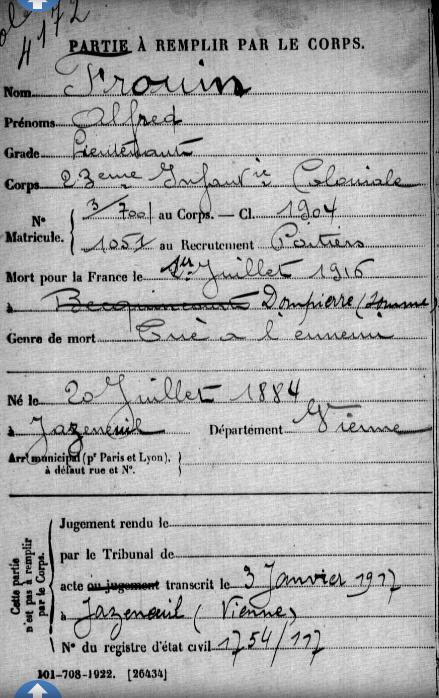 4172
PARTIE À REMPLIR PAR LE CORPS.
Nom Frouin
Prénoms Alfred
Grade Lieutenant
Corps 23eme Infantrie Coloniale
N° Matricule. { 3/700 au Corps. — Cl. 1904
1051 au Recrutement Poitiers
Mort pour la France le 1er Juillet 1916
à Becquincourt Dompierre (Somme)
Genre de mort Tué a l'ennemi
Né le 20 Juillet 1884
à Jazeneuil Département Vienne
Arrt municipal (pr Paris et Lyon), à défaut rue et N°. }
Cette partie n'est pas à remplir par le Corps.
Jugement rendu le
par le Tribunal de
acte ou jugement transcrit le 3 Janvier 1917
à Jazeneuil (Vienne)
N° du registre d'état civil 1754/117
101-708-1922. [26434]